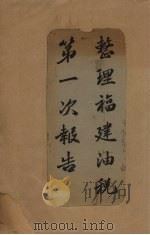 整理福建油税
第一次報告
mtoou.info